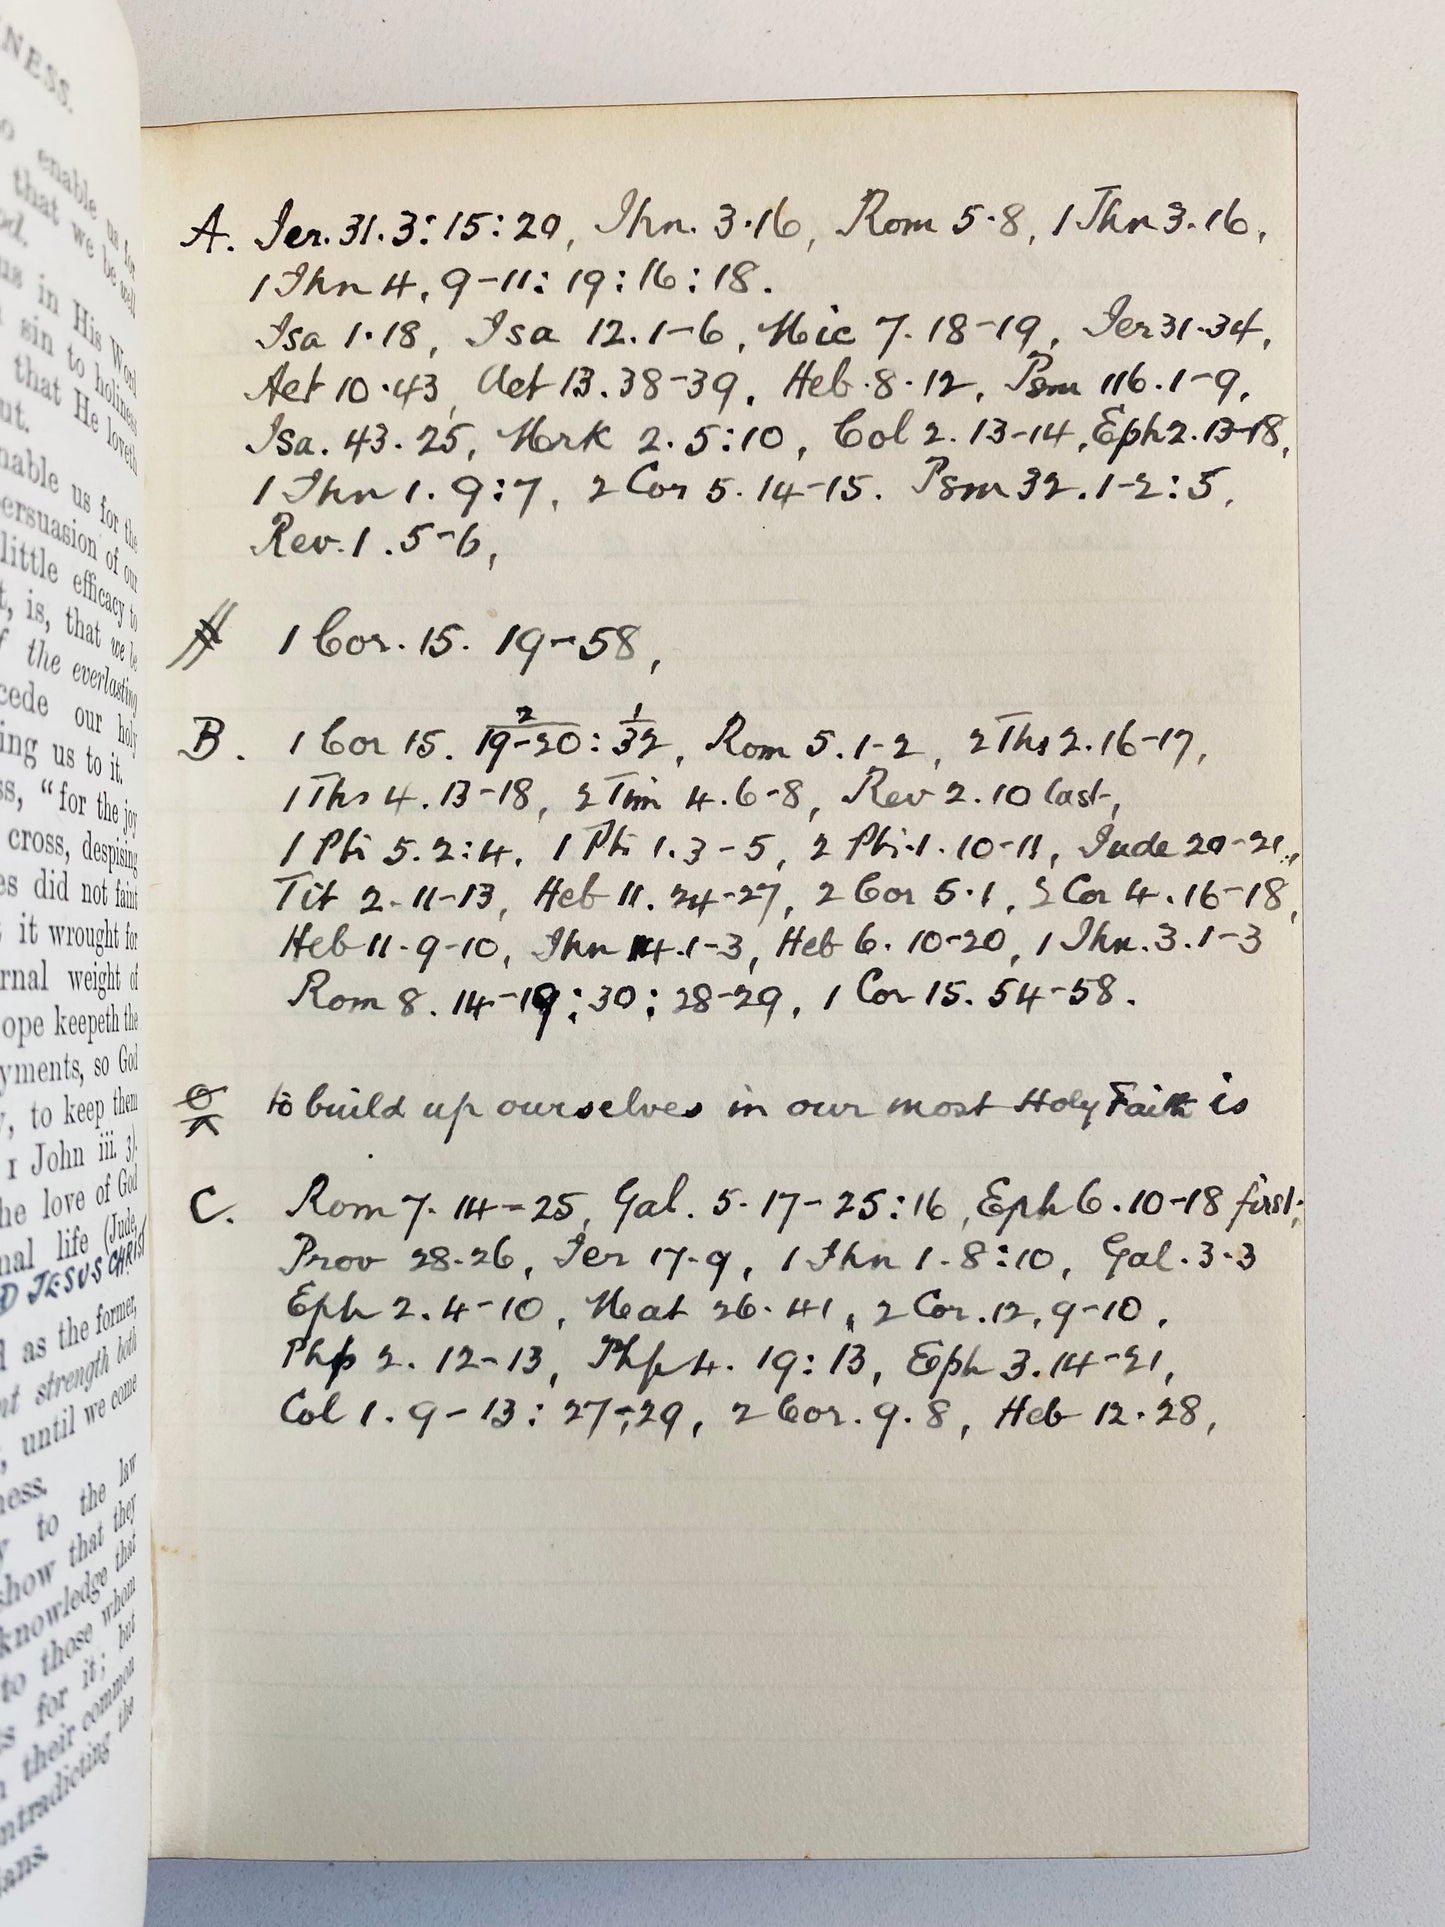 NESS.
enable us for
that we be well
us in His Word
sin to holiness
that He loveth
nable us for the
ersuasion of our
little efficacy to
t, is, that we be
f the everlasting
cede our holy
ing us to it.
ss, "for the joy
cross, despising
es did not faint
it wrought for
rnal weight of
ope keepeth the
yments, so God
, to keep them
1 John iii. 3).
he love of God
nal life (Jude,
D JESUS CHRIST
d as the former,
nt strength both
, until we come
ness.
y to the law
show that they
knowledge that
to those whom
s for it; but
n their common
ntradicting the
ians.
A. Jer. 31. 3 : 15 : 20, Jhn. 3·16, Rom 5·8, 1 Jhn 3. 16,
1 Jhn 4, 9-11 : 19 : 16 : 18.
Isa 1·18, Isa 12. 1-6, Mic 7. 18-19, Jer 31·34,
Act 10·43, Act 13. 38-39, Heb·8·12, Psm 116. 1-9,
Isa. 43. 25, Mark 2. 5 : 10, Col 2. 13-14, Eph 2. 13-18,
1 Jhn 1. 9 : 7, 2 Cor 5. 14-15. Psm 32. 1-2 : 5,
Rev. 1. 5-6,
1 Cor. 15. 19-58,
B. 1 Cor 15. 19-20 2 : 32 1, Rom 5. 1-2, 2 Ths 2. 16-17,
1 Ths 4. 13-18, 2 Tim 4. 6-8, Rev 2. 10 last,
1 Pti 5. 2 : 4, 1 Pti 1. 3-5, 2 Pti·1. 10-11, Jude 20-21,
Tit 2. 11-13, Heb 11. 24-27, 2 Cor 5·1, 2 Cor 4. 16-18,
Heb 11. 9-10, Jhn 14. 1-3, Heb 6. 10-20, 1 Jhn. 3. 1-3
Rom 8. 14-19 : 30 : 28-29, 1 Cor 15. 54-58.
to build up ourselves in our most Holy Faith is
C. Rom 7. 14-25, Gal. 5. 17-25 : 16, Eph 6. 10-18 first,
Prov 28. 26, Jer 17. 9, 1 Jhn 1. 8 : 10, Gal. 3. 3
Eph 2. 4-10, Mat 26. 41, 2 Cor. 12, 9-10,
Php 2. 12-13, Php 4. 19 : 13, Eph 3. 14-21,
Col 1. 9-13 : 27-29, 2 Cor. 9. 8, Heb 12. 28,